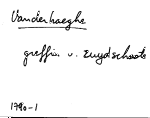 Vanderhaeghe
greffin v. Zuydschoote
1790-1